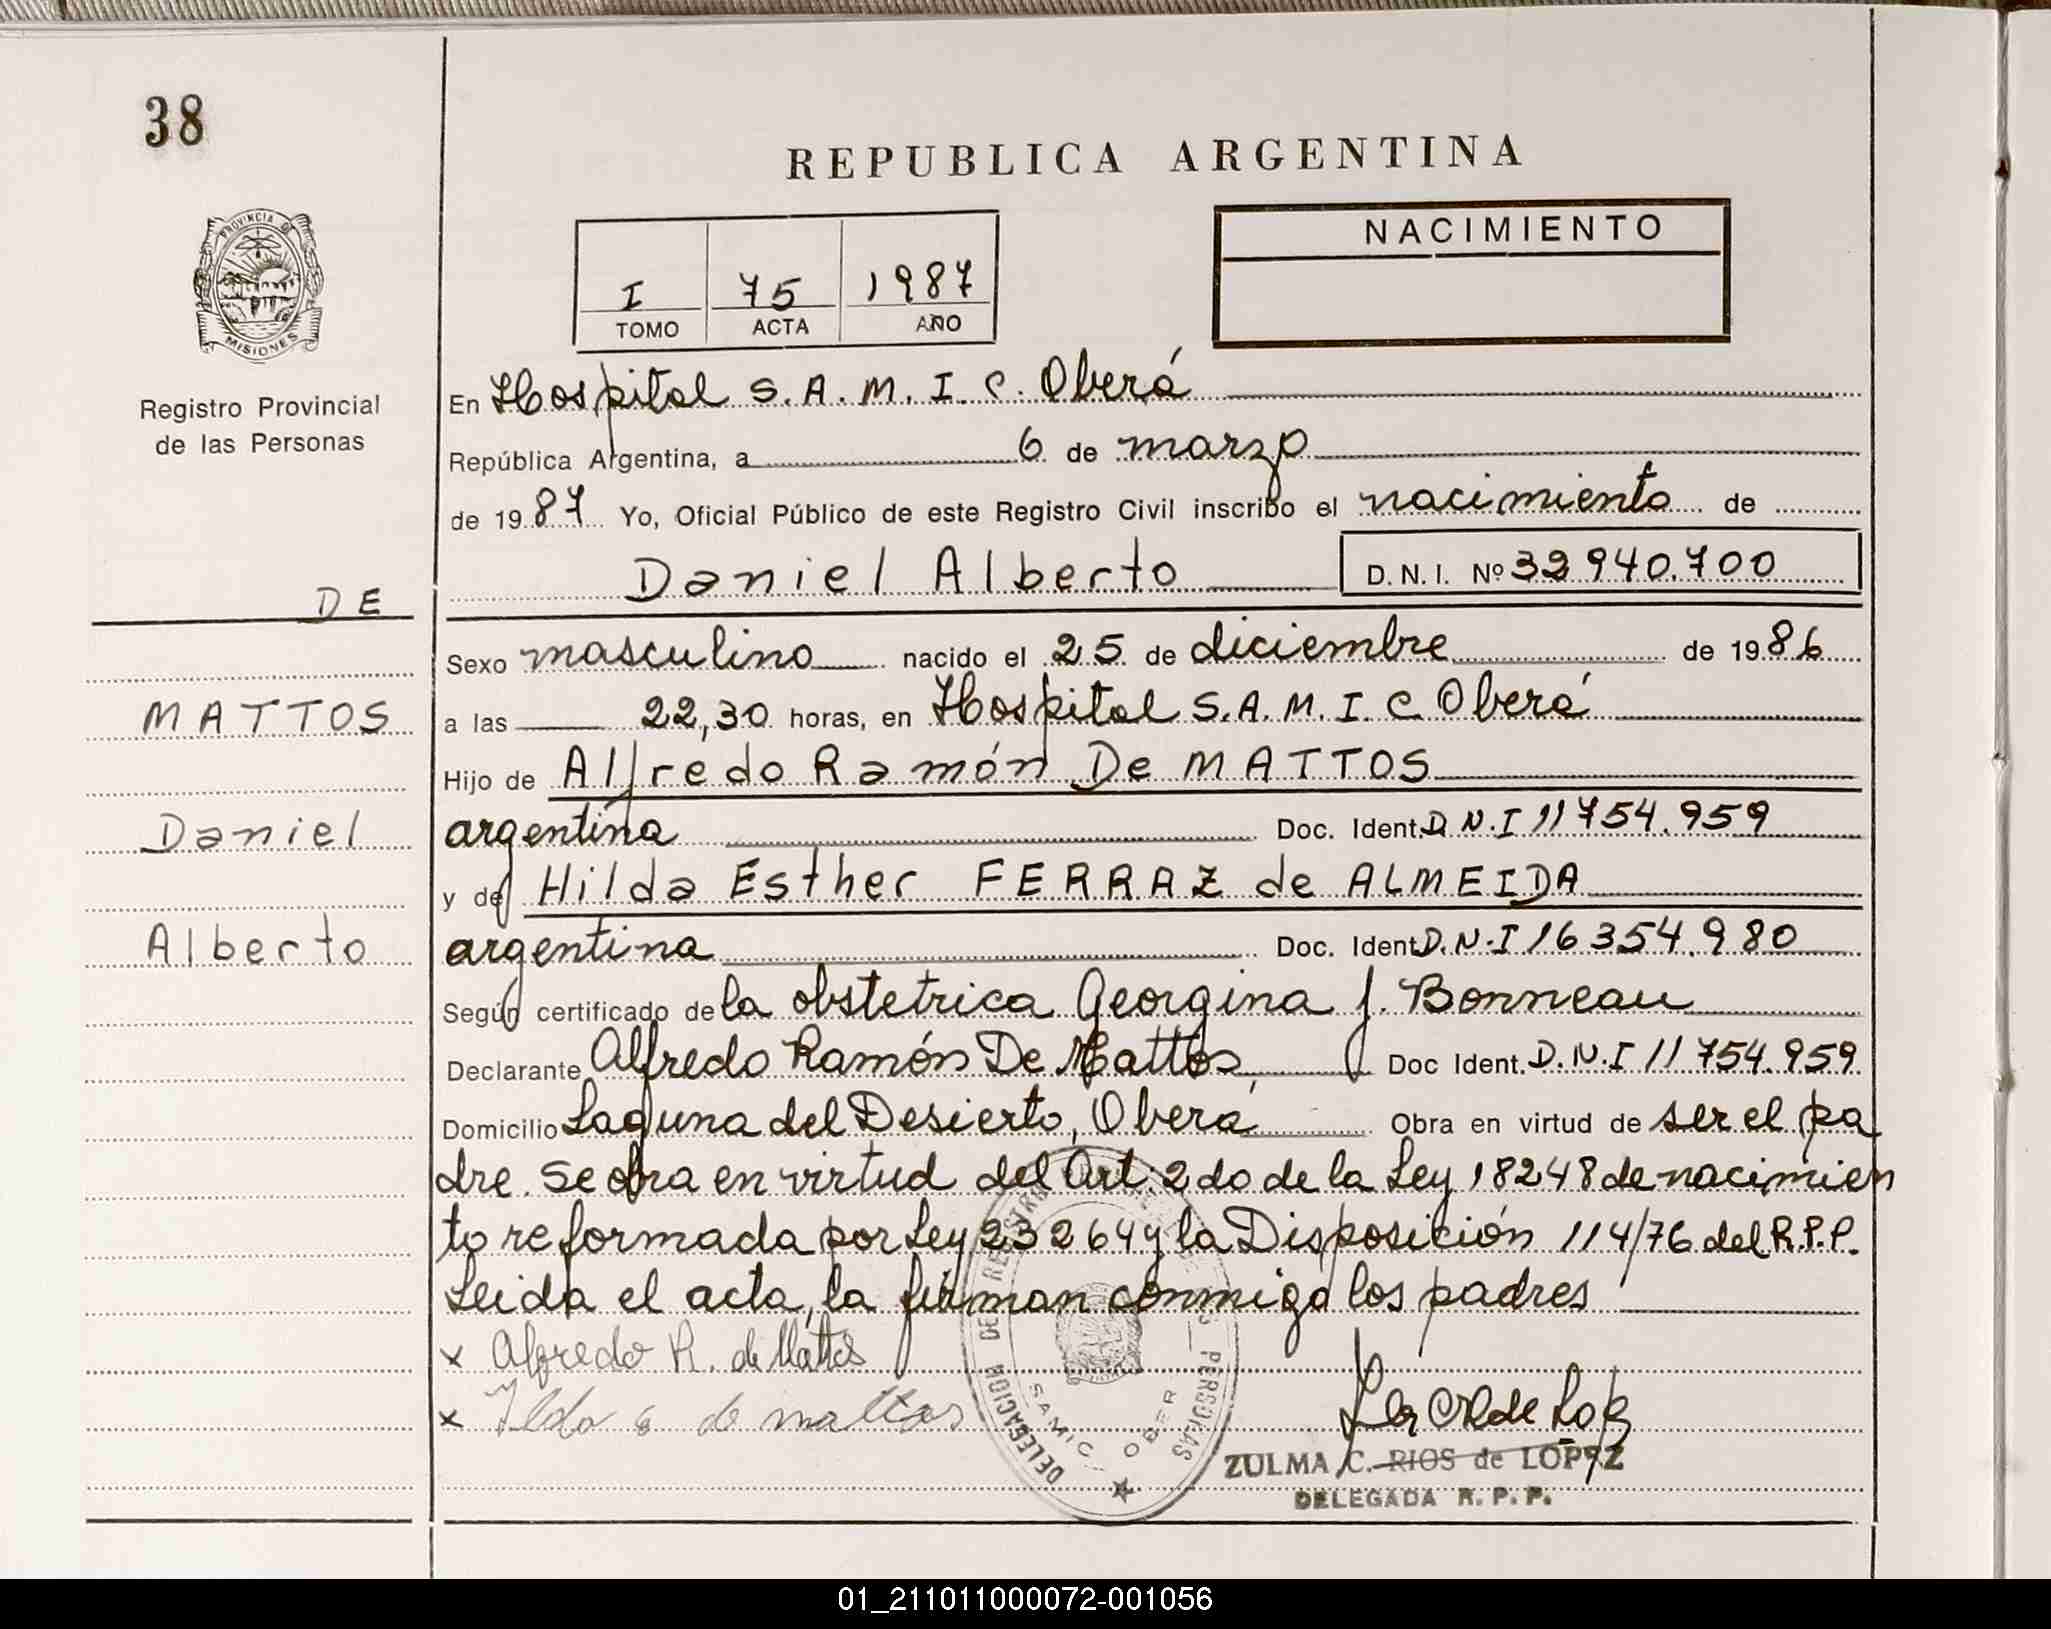 38
REPUBLICA ARGENTINA
PROVINCIA DE
MISIONES
NACIMIENTO
I 75 1987
TOMO ACTA AÑO
Registro Provincial
de las Personas
En Hospital S.A.M.I.C. Oberá
República Argentina, a 6 de marzo
de 1987 Yo, Oficial Público de este Registro Civil inscribo el nacimiento de
Daniel Alberto D.N.I. Nº 32940.700
DE
MATTOS
Daniel
Alberto
Sexo masculino nacido el 25 de diciembre de 1986
a las 22,30 horas, en Hospital S.A.M.I.C. Oberá
Hijo de Alfredo Ramón De MATTOS
argentina Doc. Ident. D.N.I 11754.959
y de Hilda Esther FERRAZ de ALMEIDA
argentina Doc. Ident. D.N.I 16354.980
Según certificado de la obstetrica Georgina J. Bonneau
Declarante Alfredo Ramón De Mattos, Doc Ident. D.N.I 11754.959
Domicilio Laguna del Desierto, Oberá Obra en virtud de ser el pa
dre. Se obra en virtud del Art. 2do de la Ley 18248 de nacimien
to reformada por Ley 23264 y la Disposición 114/76 del R.P.P.
Leida el acta, la firman conmigo los padres
x Alfredo R. de Mattos
x Ilda e de mattos
DELEGACION DE REGISTRO PERSONAS
SAMIC OBER
ZULMA C. RIOS de LOPEZ
DELEGADA R.P.P.
01_211011000072-001056